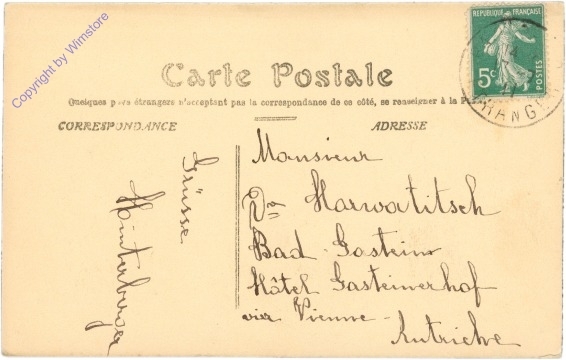 Copyright by Wimstore
REPUBLIQUE FRANÇAISE
5c
POSTES
Carte Postale
Quelques pays étrangers n'acceptant pas la correspondance de ce côté, se renseigner à la Poste
CORRESPONDANCE
ADRESSE
Grüsse
Hinterberger
Monsieur
Dr Harwatitsch
Bad-Gastein
Hôtel Gasteinerhof
vier Vienne-
Autriche